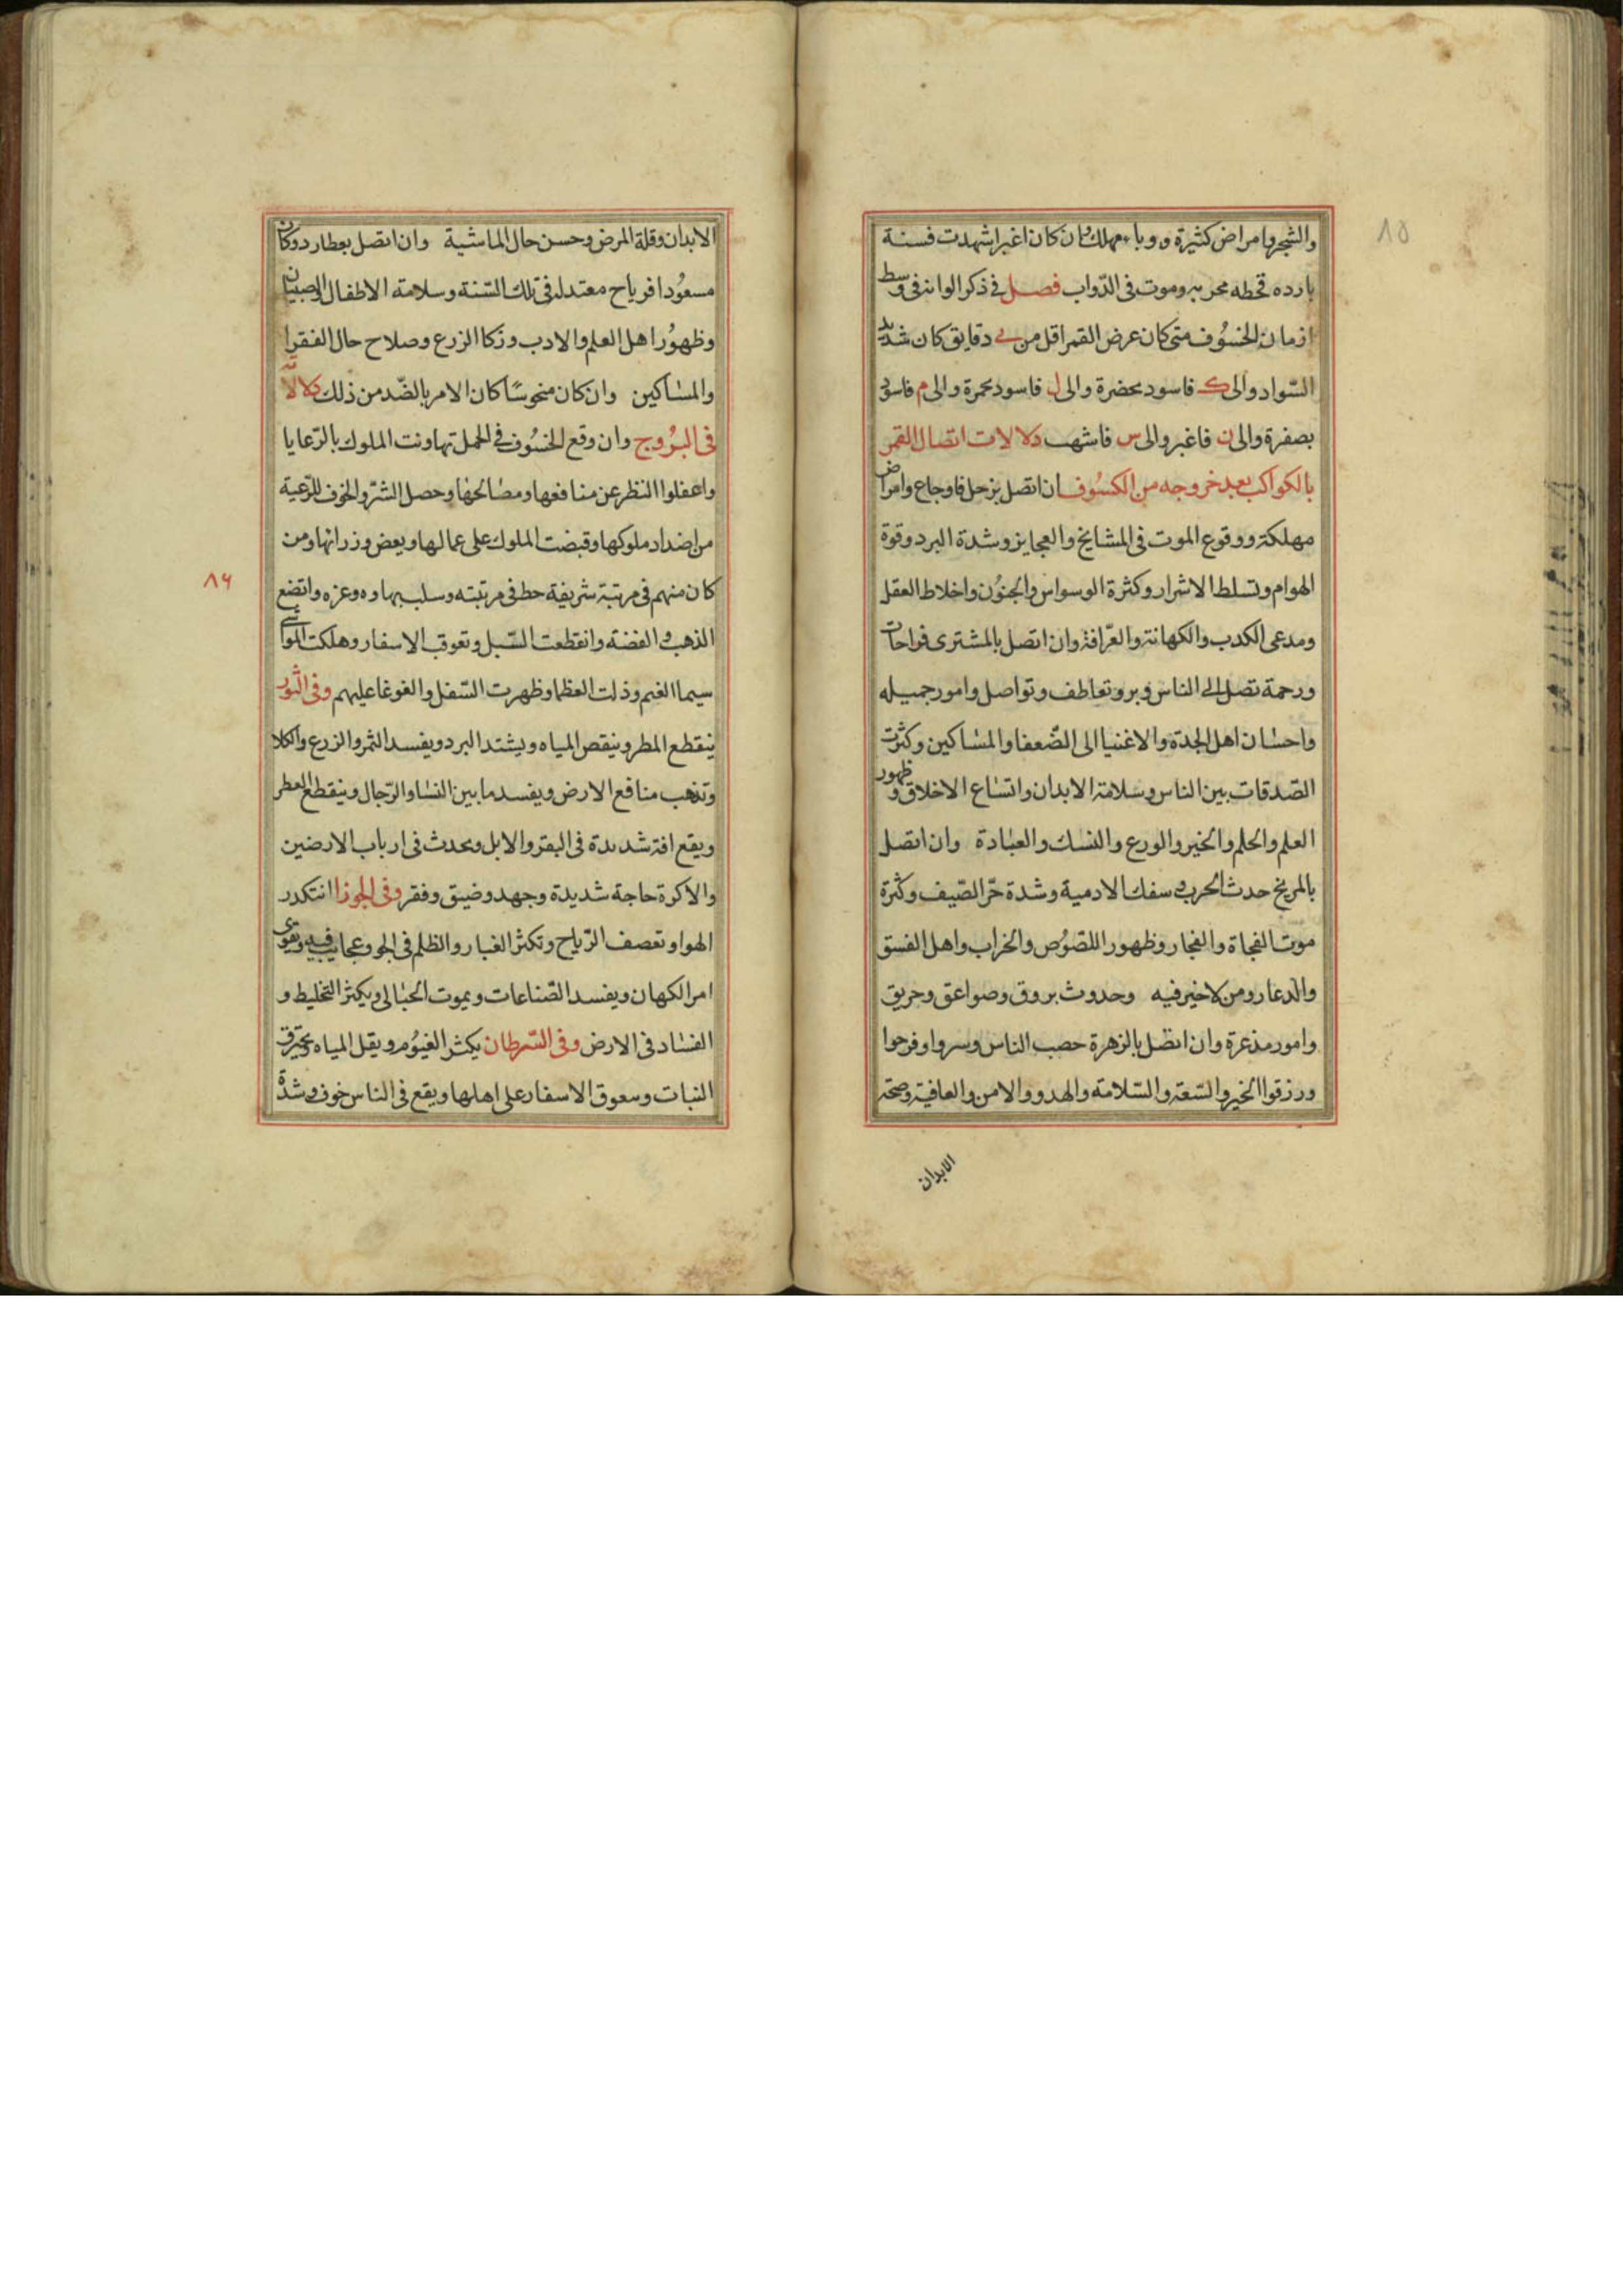 ٨٥
والشجر وامراض كثيرة ووباء مهلك وان كان اغبر اشهدت فسنة
بارده قحطه مخربه وموت فى الدّواب فصل فى ذكر الوانه فى وسط
ازمان الخسُوف متى كان عرض القمر اقل من ى دقايق كان شديد
السّواد والى ك فاسود بخضرة والى ل فاسود بحمرة والى م فاسود
بصفرة والى ن فاغبر والى س فاشهب دلالات اتصال القمر
بالكواكب بعد خروجه من الكسُوف ان اتصل بزحل فاوجاع وامراض
مهلكة ووقوع الموت فى المشايخ والعجايز وشدة البرد وقوة
الهوام وتسلط الاشرار وكثرة الوسواس والجنُون واخلاط العقل
ومدعى الكدب والكهانة والعرّافة وان اتصل بالمشترى فواحات
ورحمة تصل الى الناس وبر وتعاطف وتواصل وامور جميله
واحسان اهل الجدة والاغنيا الى الضّعفا والمساكين وكثرت
الصّدقات بين الناس وسلامة الابدان واتساع الاخلاق وظهور
العلم والحلم والخير والورع والنسك والعبادة وان اتصل
بالمريخ حدث الحرب وسفك الادمية وشدة حرّ الصّيف وكثرة
موت الفجاة والفجار وظهور اللصُوص والخراب واهل الفسق
والدعار ومن لا خير فيه وحدوث بروق وصواعق وحريق
وامور مذعرة وان اتصل بالزهرة خصب الناس وسروا وفرحوا
ورزقوا الخير والسّعة والسّلامة والهدو والامن والعافية وصحة
الابدان
الابدان وقلة المرض وحسن حال الماشية وان اتصل بعطارد وكان
مسعُودا فرياح معتدله فى تلك السّنة وسلامة الاطفال والصبيان
وظهُور اهل العلم والادب وزكا الزرع وصلاح حال الفقرا
والمساكين وان كان منحوسًا كان الامر بالضّد من ذلك دلالاته
فى البُروج وان وقع الخسُوف فى الحمل تهاونت الملوك بالرّعايا
واغفلوا النظر عن منافعها ومصالحها وحصل الشرّ والخوف للرّعية
من اضداد ملوكها وقبضت الملوك على عمالها وبعض وزرائها ومن
كان منهم فى مرتبة شريفة حط فى مرتبته وسلب بهاوه وعزه واتضع
٨٦
الذهب والفضه وانقطعت السّبل وتعوقب الاسفار وهلكت المواشى
سيما الغنم وذلت العظما وظهرت السّفل والغوغا عليهم وفى الثور
ينقطع المطر وينقص المياه ويشتد البرد ويفسد الثمر والزرع والكلا
وتذهب منافع الارض ويفسد ما بين النسا والرّجال وينقطع العطر
ويقع افة شديدة فى البقر والابل ويحدث فى ارباب الارضين
والاكرة حاجة شديدة وجهد وضيق وفقر وفى الجوزا انتكدر
الهوا وتعصف الرّياح وتكثر الغبار والظلم فى الجو وعجايب فيه وتقوى
امر الكهان ويفسد الصّناعات ويموت الحبالى ويكثر التخليط و
الفساد فى الارض وفى السّرطان يكثر الغيُوم ويقل المياه ويحترق
النبات وسعوق الاسفار على اهلها ويقع فى الناس خوف وشدة